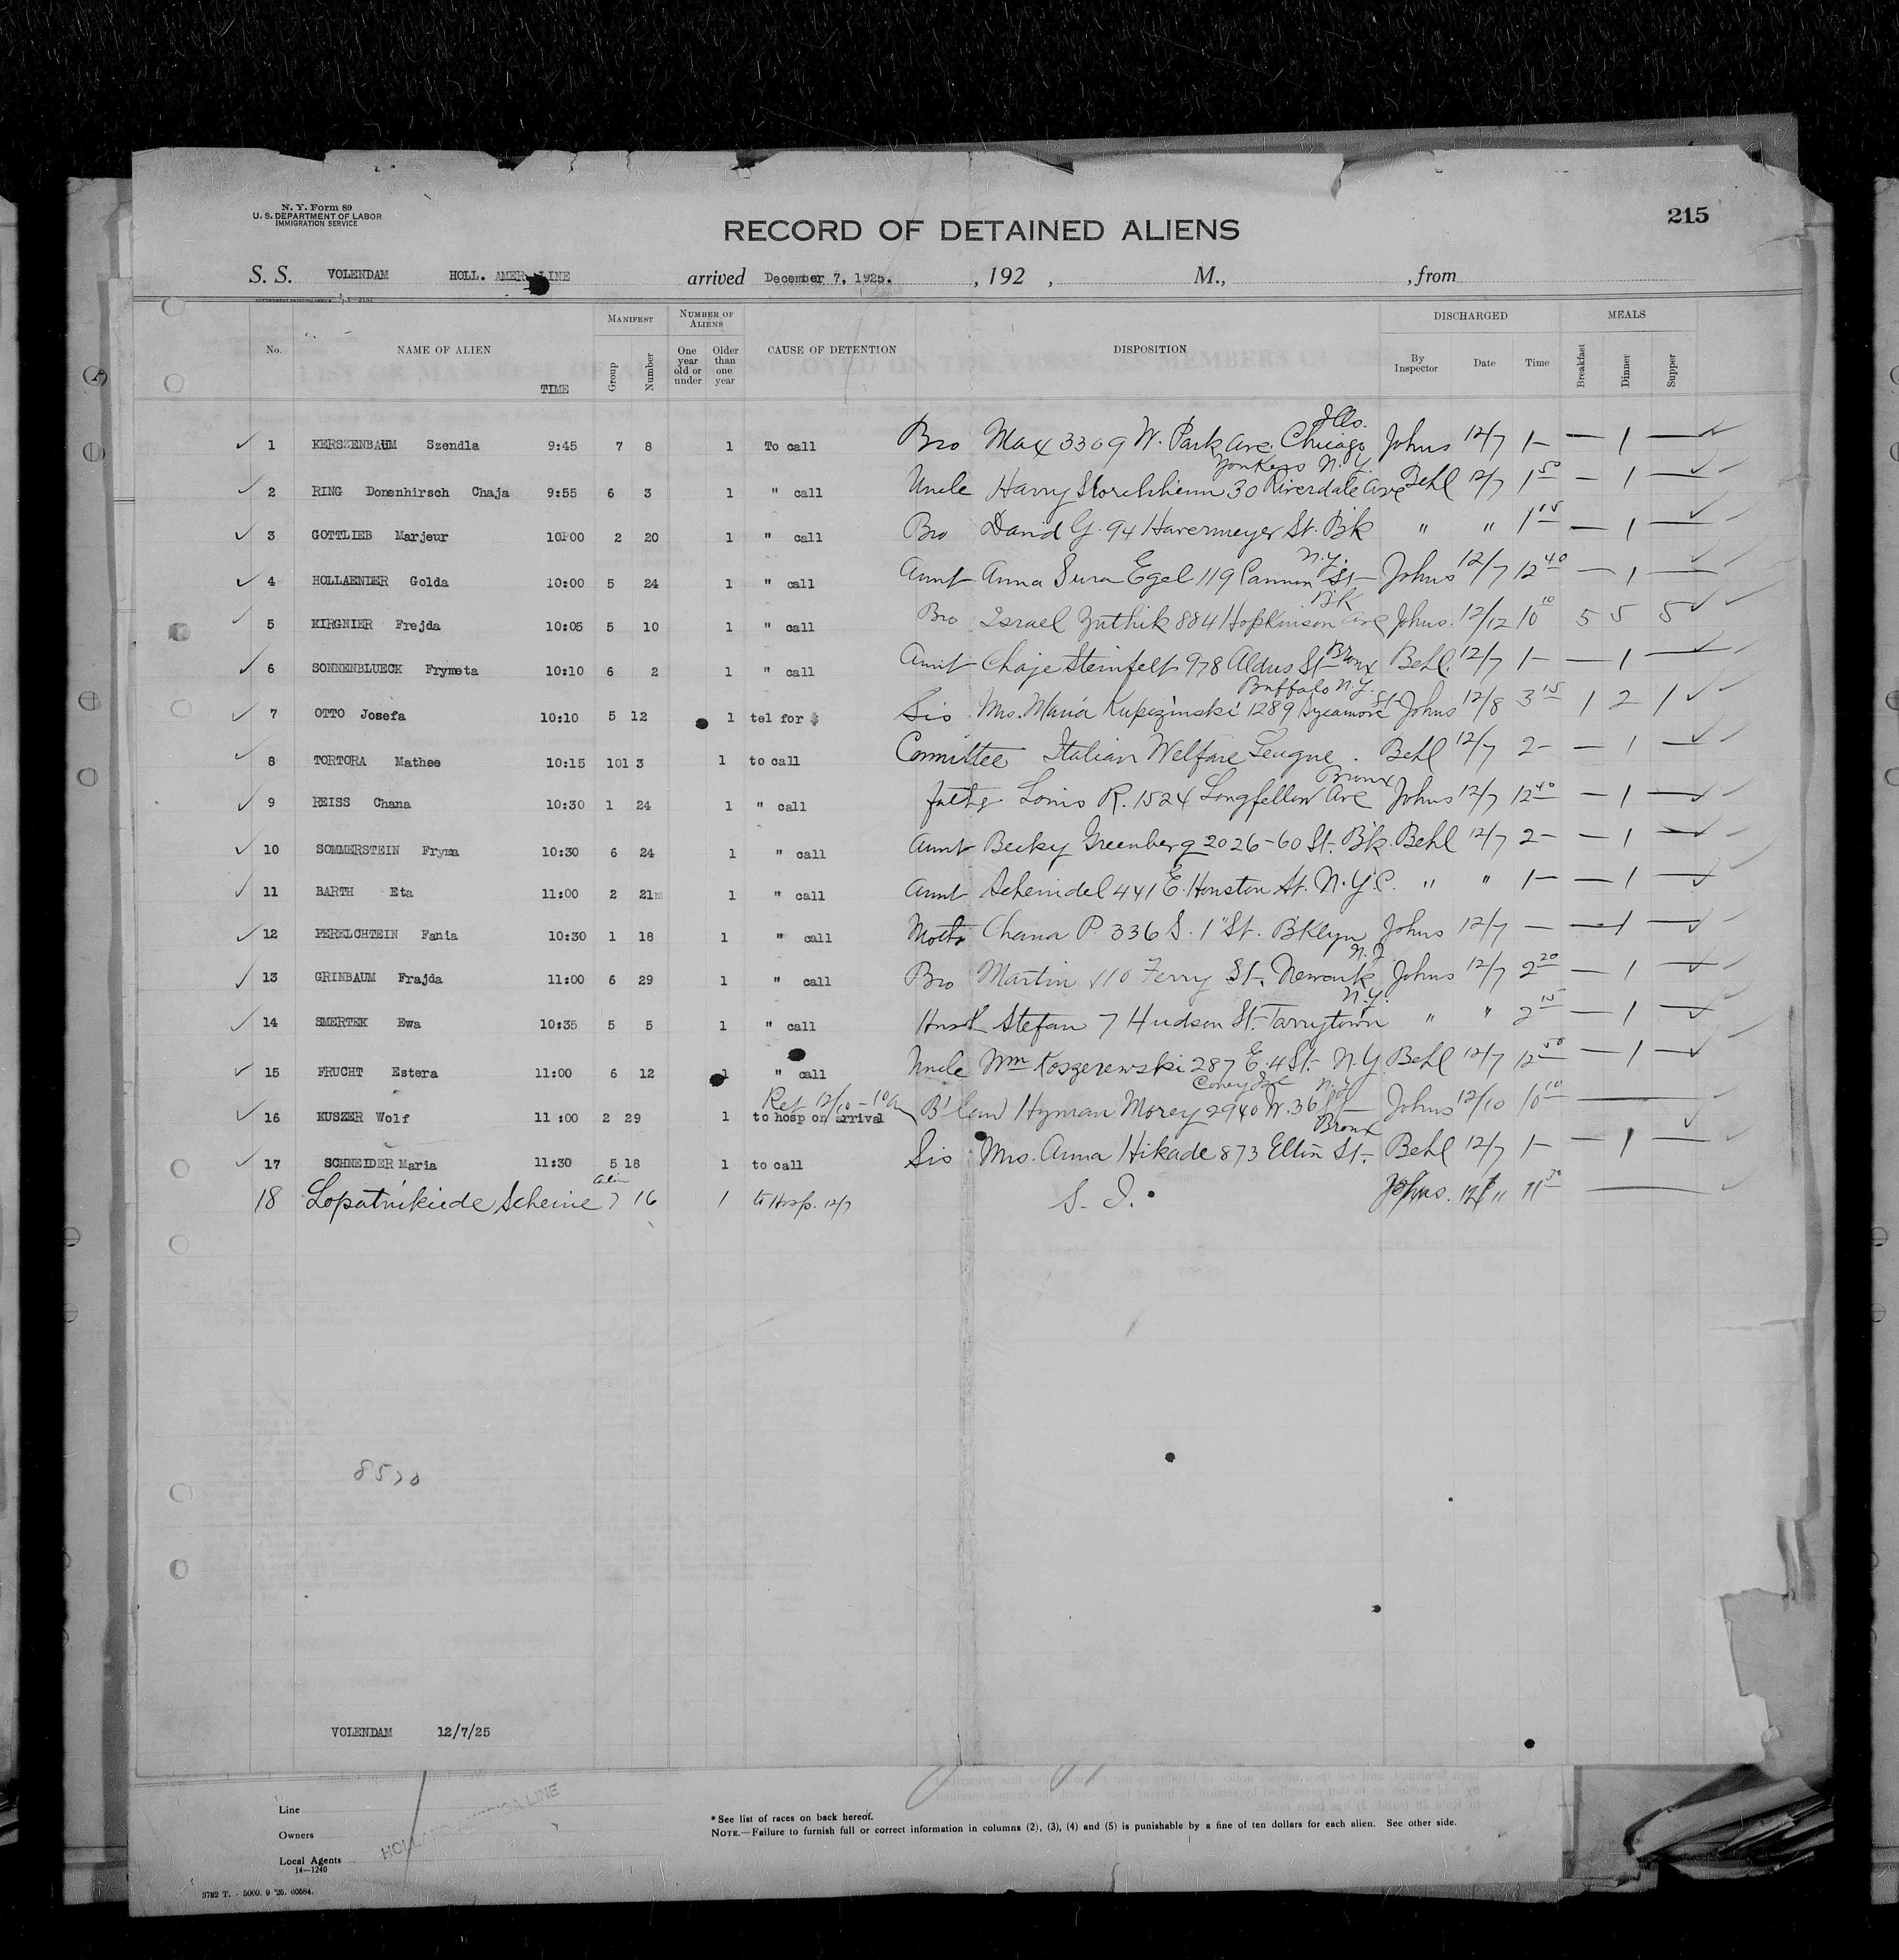 N. Y. Form 89
U. S. DEPARTMENT OF LABOR
IMMIGRATION SERVICE
RECORD OF DETAINED ALIENS
215
S. S. VOLENDAM HOLL. AMER LINE arrived December 7, 1925. , 192 , M., , from
No. NAME OF ALIEN TIME MANIFEST Group Number NUMBER OF ALIENS One year old or under Older than one year CAUSE OF DETENTION DISPOSITION DISCHARGED By Inspector Date Time MEALS Breakfast Dinner Supper
1 KERSZENBAUM Szendla 9:45 7 8 1 To call Bro Max 3309 W. Park Ave. Chicago Ills. Johns 12/7 1— — 1 —
2 RING Domenhirsch Chaja 9:55 6 3 1 " call Uncle Harry 30 Riverdale Ave Yonkers N.Y. Behl 12/7 1 50 — 1 —
3 GOTTLIEB Marjeur 10P00 2 20 1 " call Bro David G. 94 Havermeyer St. B'k " " 1 15 — 1 —
4 HOLLAENDER Golda 10:00 5 24 1 " call Aunt Anna Sura Egel 119 Cannon St N.Y. Johns 12/7 12 40 — 1 —
5 KIRGNIER Frejda 10:05 5 10 1 " call Bro Israel 884 Hopkinson Ave B'k Johns. 12/12 10 10 5 5 5
6 SONNENBLUECK Frymeta 10:10 6 2 1 " call Aunt Chaje Steinfelt 978 Aldus St Bronx Behl. 12/7 1— — 1 —
7 OTTO Josefa 10:10 5 12 1 tel for $ Sis Mrs. Maria Kupczinski 1289 Sycamore St Buffalo N.Y. Johns 12/8 3 15 1 2 1
8 TORTORA Mathee 10:15 101 3 1 to call Committee Italian Welfare League. Behl 12/7 2— — 1 —
9 REISS Chana 10:30 1 24 1 " call Louis R. 1524 Longfellow Ave Bronx Johns 12/7 12 40 — 1 —
10 SOMMERSTEIN Fryma 10:30 6 24 1 " call Aunt Becky Greenberg 2026-60 St. B'k. Behl 12/7 2— — 1 —
11 BARTH Eta 11:00 2 21m 1 " call Aunt Scheindel 441 E. Houston St. N.Y.C. " " 1— — 1 —
12 PERELCHTEIN Fania 10:30 1 18 1 " call Moth Chana P. 336 S. 1" St. B'klyn Johns 12/7 — — 1 —
13 GRINBAUM Frajda 11:00 6 29 1 " call Bro Martin 110 Ferry St. Newark N.J. Johns 12/7 2 20 — 1 —
14 SMERTEK Ewa 10:35 5 5 1 " call Husb Stefan 7 Hudson St. Tarrytown N.Y. " " 2 15 — 1 —
15 FRUCHT Estera 11:00 6 12 1 " call Uncle Wm Koszerewski 287 E. 4 St. N.Y. Behl 12/7 12 50 — 1 —
16 KUSZER Wolf 11:00 2 29 1 to hosp on arrival Ret 12/10 - 10 A B'law Hyman Morey 2940 W. 36 St Coney Isl N.Y. Johns 12/10 10 10 —
17 SCHNEIDER Maria 11:30 5 18 1 to call Sis Mrs. Anna Hikade 873 Elton St. Bronx Behl 12/7 1— — 1 —
18 Lopatnikiede Scheine 7 16 1 to Hosp. 12/7 S. I. Johns. 11 30 —
VOLENDAM 12/7/25
Line
Owners
Local Agents
14—1240
3782 T. - 5000. 9 '25. 60584.
* See list of races on back hereof.
NOTE.—Failure to furnish full or correct information in columns (2), (3), (4) and (5) is punishable by a fine of ten dollars for each alien. See other side.